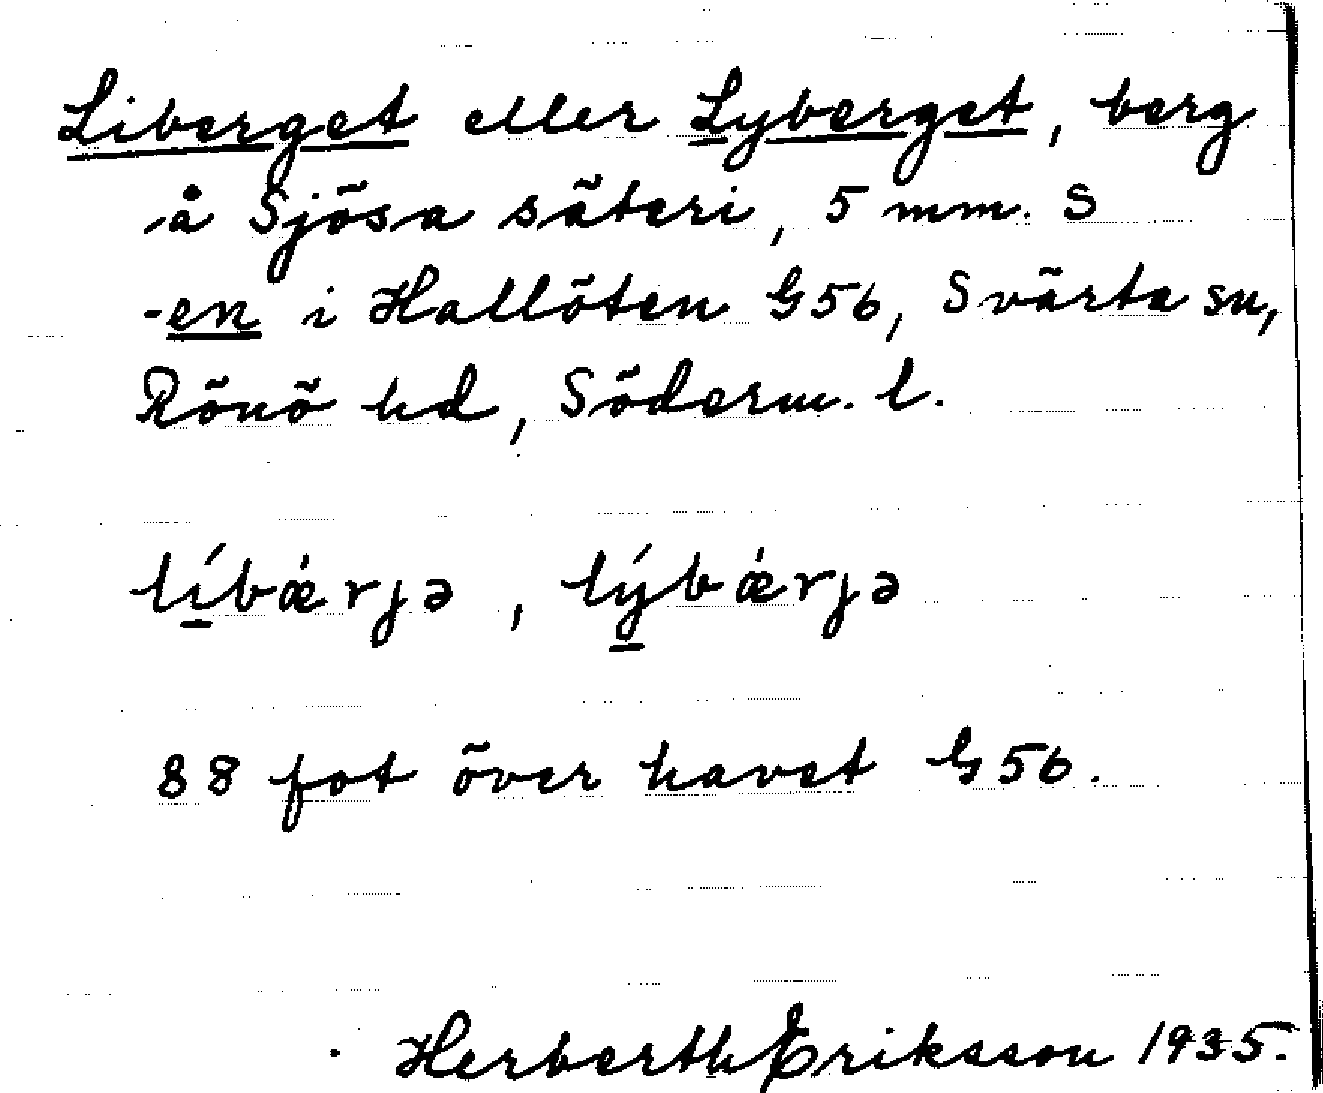 Liberget eller Lyberget, berg
å Sjösa säteri, 5 mm. S
-en i Hallöten G56, Svärta sn,
Rönö hd, Söderm. l.
líbǽrjə, lýbǽrjə
88 fot över havet G56.
Herberth Eriksson 1935.